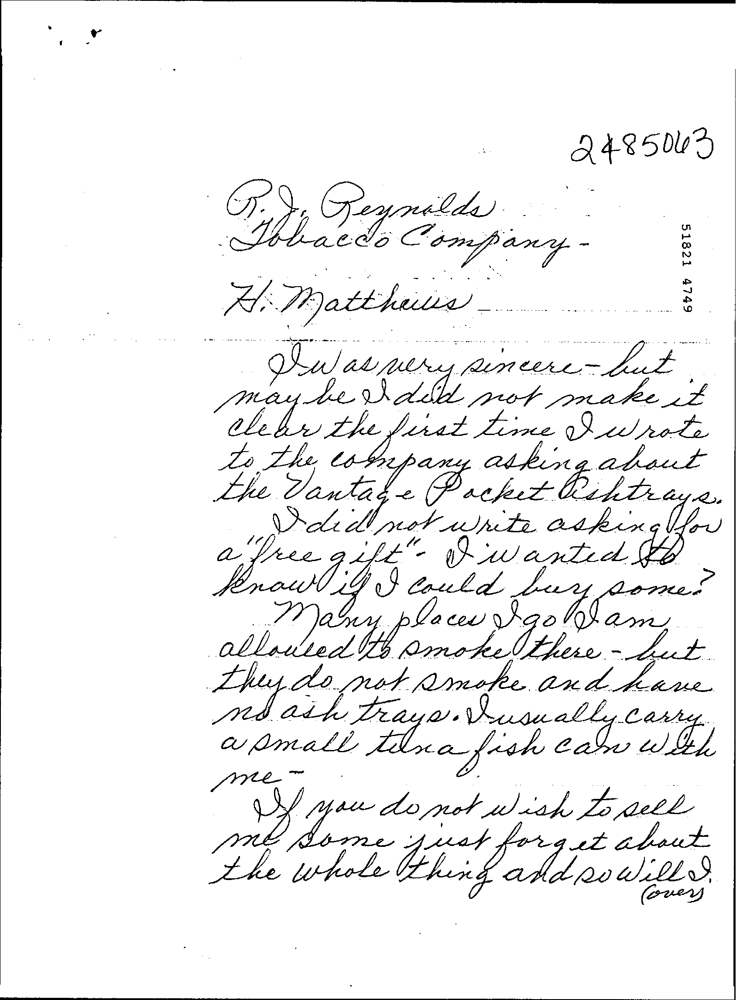 2485063
R. J. Reynolds
Tobacco Company -
51821 4749
H. Matthews
I was very sincere - but
maybe I did not make it
clear the first time I wrote
to the company asking about
the Vantage Pocket Ashtrays.
I did not write asking for
a "free gift" - I wanted to
know if I could buy some?
Many places I go I am
allowed to smoke there - but
they do not smoke and have
no ash trays. I usually carry
a small tuna fish can with
me -
If you do not wish to sell
me some just forget about
the whole thing and so will I.
(over)